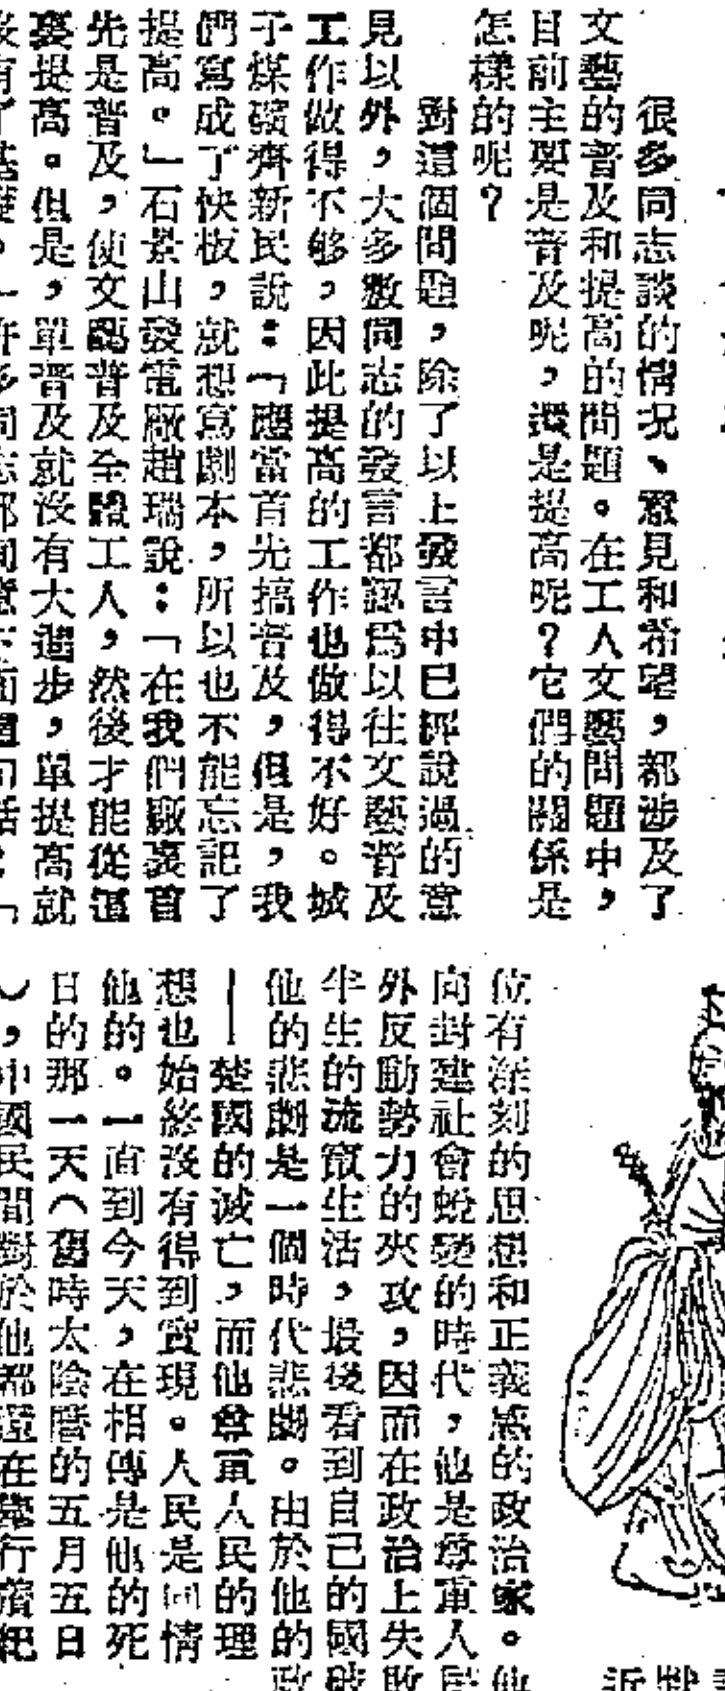 很多同志談的情况、意見和希望，都涉及了
文藝的普及和提高的問題。在工人文藝問題中，
目前主要是普及呢，還是提高呢？它們的關係是
怎樣的呢？
對這個問題，除了以上發言中已經說過的意
見以外，大多數同志的發言都認爲以往文藝普及
工作做得不够，因此提高的工作也做得不好。城
子煤礦齊新民說：「應當首先搞普及，但是，我
們寫成了快板，就想寫劇本，所以也不能忘記了
提高。」石景山發電廠趙瑞說：「在我們廠裏首
先是普及，使文藝普及全體工人，然後才能從這
裏提高。但是，單普及就沒有大進步，單提高就
位有深刻的思想和正義感的政治家。他
向封建社會蛻變的時代，他是尊重人民
外反動勢力的夾攻，因而在政治上失敗
半生的流竄生活，最後看到自己的國破
他的悲劇是一個時代悲劇。由於他的政
——楚國的滅亡，而他尊重人民的理
想也始終沒有得到實現。人民是同情
他的。一直到今天，在相傳是他的死
日的那一天（舊時太陰曆的五月五日
），中國民間對於他都還在舉行着紀